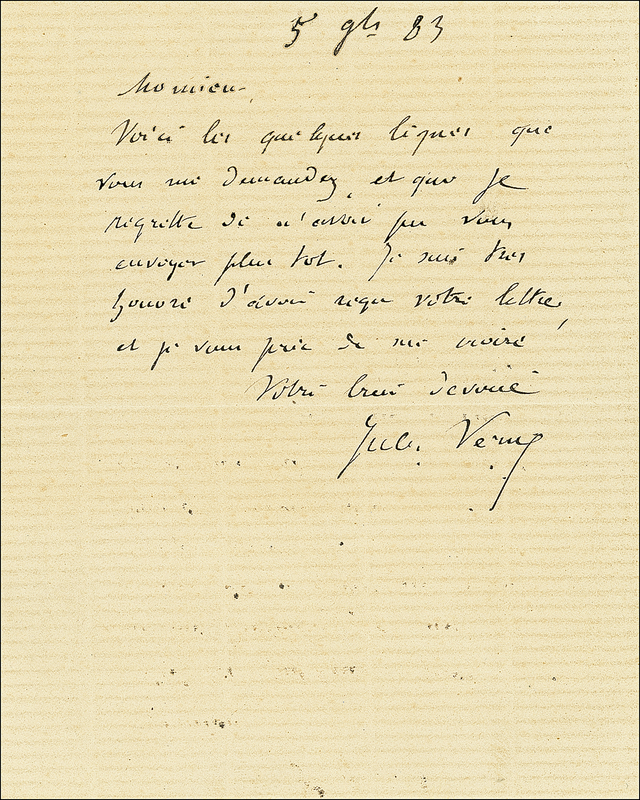 5 9bre 83
Monsieur,
Voici les quelques lignes que
vous me demandez, et que je
regrette de n'avoir pu vous
envoyer plus tot. Je suis très
honoré d'avoir reçu votre lettre,
et je vous prie de me croire
Votre bien dévoué
Jules Verne